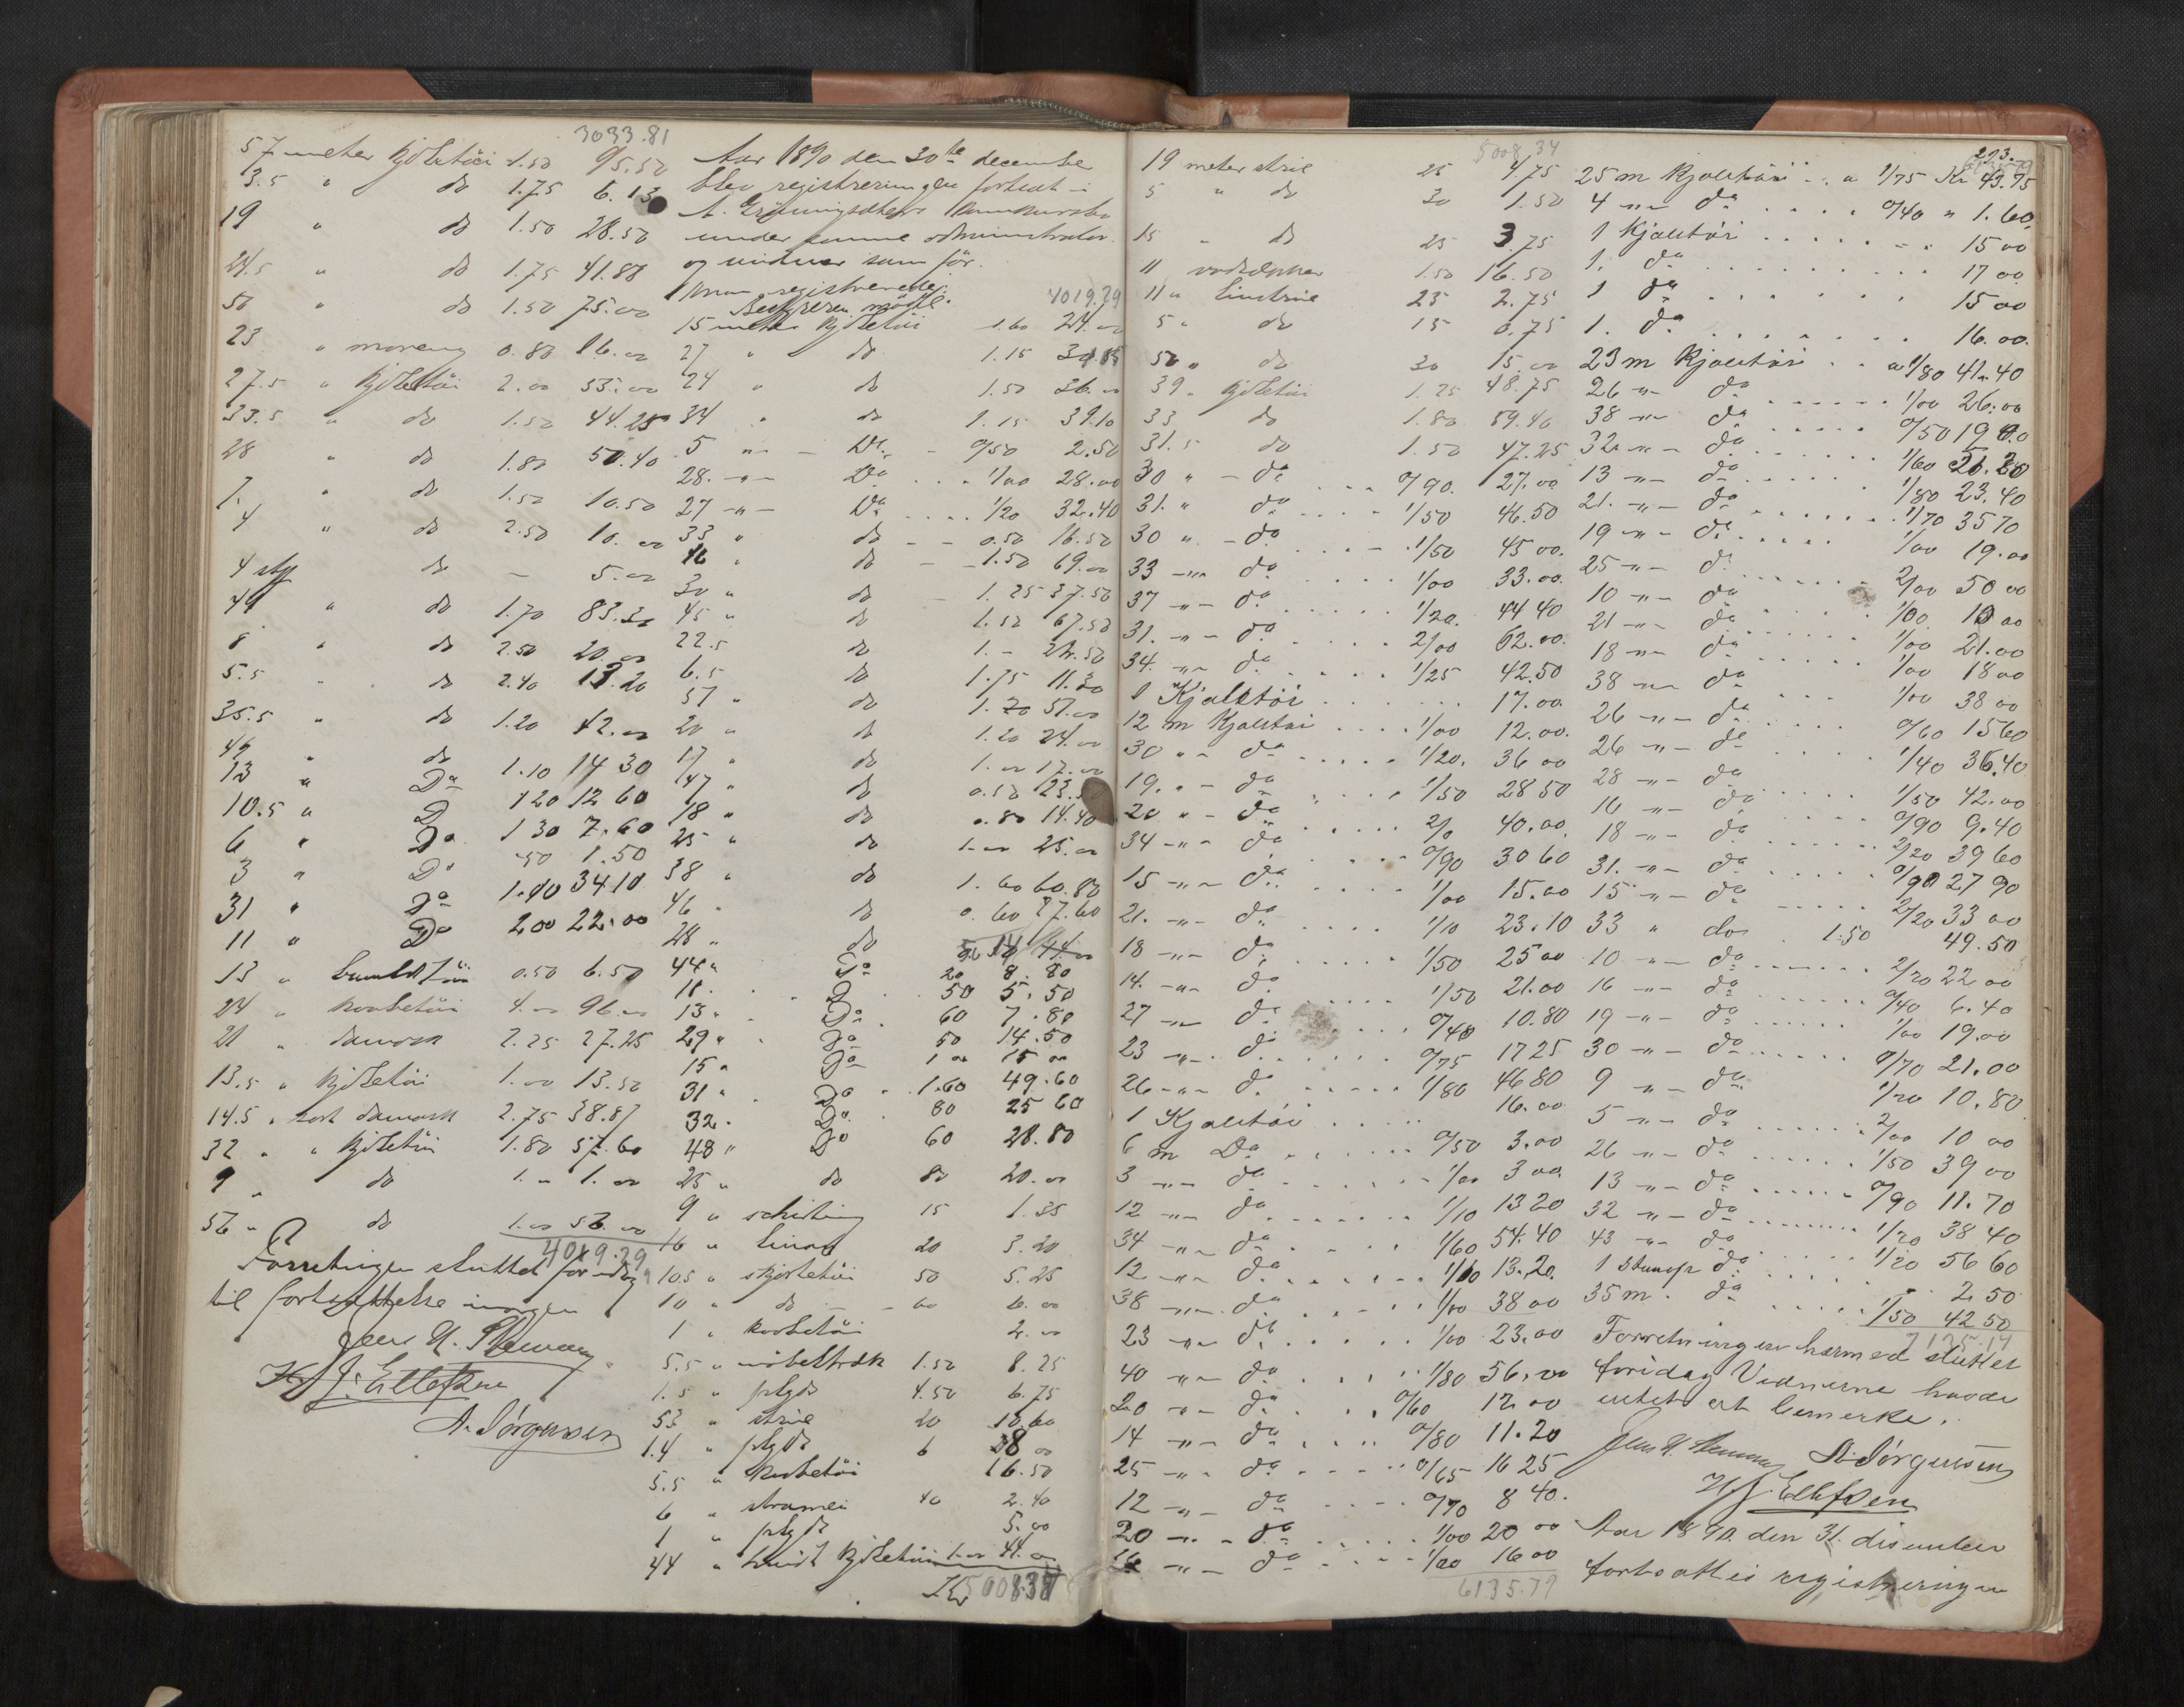 3033.81
57 meter kjoletøi 1.50 95.50
3.5 " do 1.75 6.13
19 " do 1.50 28.50
24.5 " do 1.75 41.88
50 " do 1.50 75.00
23 " moreng 0.80 16.00
27.5 " kjoletøi 2.00 55.00
33.5 " do 1.50 44.25
28 " do 1.80 50.40
7. " do 1.50 10.50
4 " do 2.50 10.00
4 stk do — 5.00
49 " do 1.70 83.30
8 " do 2.50 20.00
5.5 " do 2.40 13.20
35.5 " do 1.20 42.00
42 " do
13 " Do 1.10 14 30
10.5 " D 120 12 60
6 " Do 1 30 7.60
3 " Do .50 1.50
31 " Do 1.10 34 10
11 " Do 2 00 22.00
13 " bomuldstøi 0.50 6.50
24 " kaabetøi 4.00 96.00
21 " damask 2.25 27.25
13.5 " kjoletøi 1.00 13.50
14.5 " sort damask 2.75 38.87
32 " " kjoletøi 1.80 57.60
9 " do 1.00 1.00
56 " do 1.00 56.00
4019.29
Forretningen sluttet for idag
til fortsættelse imorgen
H J. Ellefsen
A. Jörgensen
Aar 1890 den 30te december
blev registreringen fortsat i
A. Grönningsæters konkursbo
under samme administrator
og vidner som för.
Man registrerede:
Bestyreren mødte.
4019.29
15 meter kjoletøi 1.60 24.00
27 " do 1.15 31.05
24 " do 1.50 36.00
34 " do 1.15 39.10
5 " — Do — 0/50 2.50
28. -"- Do . . . 1/00 28.00
27 -"- Do . . . . 1/20 32.40
33 " do — — 0.50 16.50
46 " do — — 1.50 69.00
30 " do — 1.25 37.50
45 " do 1.50 67.50
22.5 do 1.— 22.50
6.5 do 1.75 11.30
57 " do 1.00 57.00
20 " do 1.20 24.00
17 " do 1.00 17.00
47 " do 0.50 23.50
18 " do 0.80 14.40
25 " do 1.00 25.00
38 " do 1.60 60.80
46 " do 0.60 27.60
28 " do
44 " Do 20 8.80
11 " D 50 5.50
13 " Do 60 7.80
29 " Do 50 14.50
15 " Do 1 00 15 00
31 " Do 1.60 49.60
32 " Do 80 25 60
48 " Do 60 28.80
25 " do 80 20.00
9 " schirting 15 1.35
16 " 20 3.20
10.5 " skjortetøi 50 5.25
10 " do — — 60 6.00
1 " kaabetøi 2.00
5.5 " møbeltræk 1.50 8.25
1.5 " plyds 4.50 6.75
53 " strie 20 10.60
1.4 " plyds 6
5.5 " kaabetøi 16.50
6 " stramei 40 2.40
1 " plyds 5.00
44 " hvidt kjoletøi 1.00 44.00
Kr 5008.34
5008 34
19 meter strie 25 4.75
5 " do 30 1.50
15 " do 25 3.75
11 vadsækker 1.50 16.50
11 " linstrie 25 2.75
5 " do 15 0.75
50 " do 30 15.00
39 " kjoletøi 1.25 48.75
33 do 1.80 59.40
31.5 do 1.50 47.25
30 " — do . . . 0/90. 27.00
31. " do . . . . 1/50 46.50
30 " — do . . . . 1/50 45 00.
33 -"- do . . . . 1/00 33.00.
37 -"- do . . . . . 1/20. 44 40
31. -"- do . . . . 2/00 62.00.
34. -"- do . . . . 1/25 42.50
1 Kjoletöi . . . . . . 17.00.
12 m Kjoletöi . . . . 1/00 12.00.
30 -"- do . . . . . 1/20. 36 00
19. -"- do . . . . 1/50 28 50
20 -"- do . . . . . 2/0 40.00.
34 -"- do . . . . . 0/90 30 60
15 -"- do . . . . . 1/00 15.00
21. -"- do . . . . 1/10 23.10
18 -"- do . . . . . 1/50 25 00
14. -"- do . . . . 1/50 21.00
27 -"- do . . . . . 0/40 10.80
23 -"- do . . . . . . 0/75 17 25
26 -"- do . . . . . 1/80 46 80
1 Kjoletöi . . . . . 16.00
6 m Do . . . . . . 0/50 3.00
3 -"- do . . . . . . 1/00 3 00.
12 -"- do . . . . . . 1/10 13 20
34 -"- do . . . . . . 1/60 54.40
12 -"- do . . . . . . 1/10 13.20.
38 -"- do . . . . . 1/00 38 00
23 -"- do . . . . . 1/00 23.00
40 -"- do . . . . . 1/80 56.00
20 -"- do . . . . 0/60 12.00
14 -"- do . . . . . 0/80 11.20
25 -"- do . . . . . 0/65 16 25
12 -"- do . . . . 0/70 8 40.
20 -"- do . . . . . 1/00 20 00
16 -"- do . . . . . 1/00 16 00
6135.79
203.
25 m Kjoletöi . . a 1/75 Kr 43.75
4 -"- do . . . . 0/40 " 1.60
1 Kjoletöi . . . . . . 15 00
1. do . . . . . . . . . 17 00
1 do . . . . . . . 15 00
1. do . . . . . . . . 16.00.
23 m Kjoletöi . . a 1/80 41.40
26 -"- do . . . . . . 1/00 26.00
38 -"- do . . . . . 0/50 19 00
32 -"- do . . . . . . 1/60
13 -"- do . . . . . . 1/80 23.40
21. -"- do . . . . . . . 1/70 35 70
19 -"- do . . . . . 1/00 19.00
25 -"- do . . . . . . 2/00 50 00
10 -"- do . . . . 1/00. 10 00
21 -"- do . . . . . . 1/00 21.00
18 -"- do . . . . . 1/00 18 00
38 -"- do . . . 1/00 38 00
26 -"- do . . . . . 0/60 15 60
26 -"- do . . . . 1/40 36.40
28 -"- do . . . . . 1/50 42.00
10 -"- do . . . . . 0/90 9.40
18 -"- do . . . . . 2/20 39 60
31. -"- do . . . . . 0/90 27 90
15 -"- do . . . . . 2/20 33 00
33 " do . 1.50 49.50
10 -"- do . . . . . . 2/20 22 00
16 -"- do . . . . . . 0/40 6.40
19 -"- do . . . . . . 1/00 19.00
30 -"- do . . . . . . 0/70 21.00
9 -"- do 1/20 10.80
5 -"- do . . . . . . 2/00 10 00
26 -"- do . . . . . . 1/50 39 00
13 -"- do . . . . . . 0/90 11.70
32 -"- do . . . . . . . . 1/20 38 40
43 -"- do . . . . . 1/20 56 60
1 Stump do . . . . . 2 50
35 m. do . . . . . 1/50 42 50
7125.14
Forretningen hermed sluttet
foridag Vidnerne havde
intet at bemerke.
A. Jörgensen
H J. Ellefsen
Aar 1890. den 31. disember
fortsattes registreringen